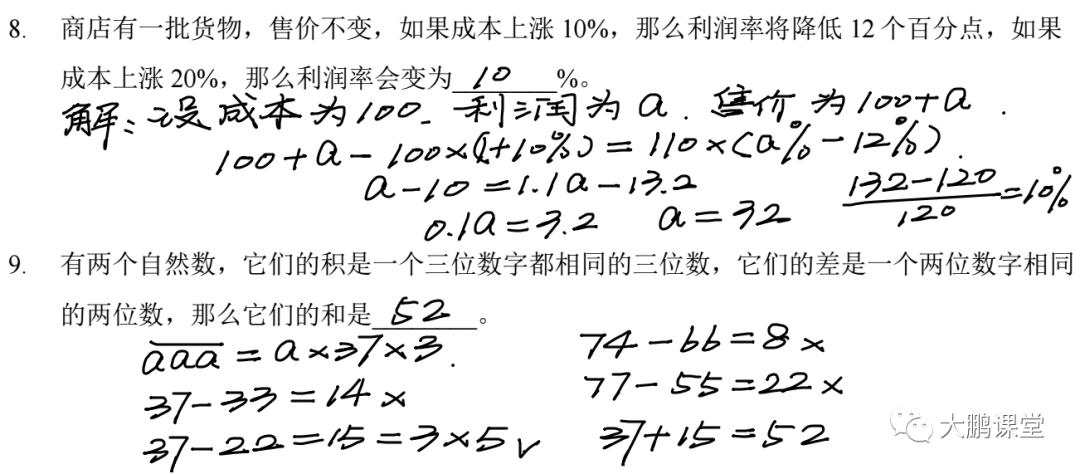 8. 商店有一批货物，售价不变，如果成本上涨 10%，那么利润率将降低 12 个百分点，如果
成本上涨 20%，那么利润率会变为 10 %。
解：设成本为100. 利润为a. 售价为100+a.
100+a-100×(1+10%)=110×(a%-12%).
a-10=1.1a-13.2
0.1a=3.2 a=32 (132-120)/120=10%
9. 有两个自然数，它们的积是一个三位数字都相同的三位数，它们的差是一个两位数字相同
的两位数，那么它们的和是 52 。
aaa=a×37×3.
74-66=8×
37-33=14×
77-55=22×
37-22=15=3×5√
37+15=52
大鹏课堂